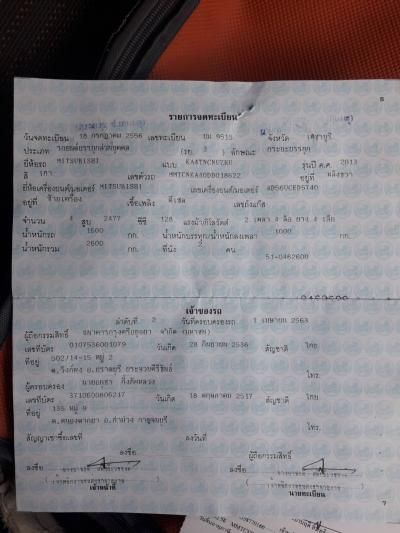 8
รายการจดทะเบียน
วันจดทะเบียน 18 กรกฎาคม 2556 เลขทะเบียน 9515 จังหวัด เพชรบุรี
ประเภท รถยนต์บรรทุกส่วนบุคคล (รย. 3 ) ลักษณะ กระบะบรรทุก
ยี่ห้อรถ MITSUBISHI แบบ KA4TNCNUZRU รุ่นปี ค.ศ. 2013
สี เทา เลขตัวรถ MMTCNKA40DD018622 อยู่ที่
ยี่ห้อเครื่องยนต์/มอเตอร์ MITSUBISHI เลขเครื่องยนต์/มอเตอร์ 4D56UCED5740
อยู่ที่ ซ้ายเครื่อง เชื้อเพลิง ดีเซล เลขถังแก๊ส
จำนวน 4 สูบ 2477 ซีซี 128 แรงม้า/กิโลวัตต์ 2 เพลา 4 ล้อ ยาง 4 เส้น
น้ำหนักรถ 1600 กก. น้ำหนักบรรทุก/น้ำหนักลงเพลา 1000 กก.
น้ำหนักรวม 2600 กก. ที่นั่ง 2 คน
51-0462600
เจ้าของรถ
ลำดับที่ 2 วันที่ครอบครองรถ 1 เมษายน 2563
ผู้ถือกรรมสิทธิ์ ธนาคารกรุงศรีอยุธยา จำกัด (มหาชน)
เลขที่บัตร 0107536001079 วันเกิด 28 กันยายน 2536 สัญชาติ ไทย
ที่อยู่ 502/14-15 หมู่ 2
ต.วังก์พง อ.ปราณบุรี จ.ประจวบคีรีขันธ์ โทร.
ผู้ครอบครอง
เลขที่บัตร 3710600806217 วันเกิด 18 พฤษภาคม 2517 สัญชาติ ไทย
ที่อยู่ 135 หมู่ 9
อ.ท่าม่วง จ.กาญจนบุรี โทร.
สัญญาเช่าซื้อเลขที่ ลงวันที่ ผู้ถือกรรมสิทธิ์
ลงชื่อ ลงชื่อ
เจ้าหน้าที่ นายทะเบียน
7